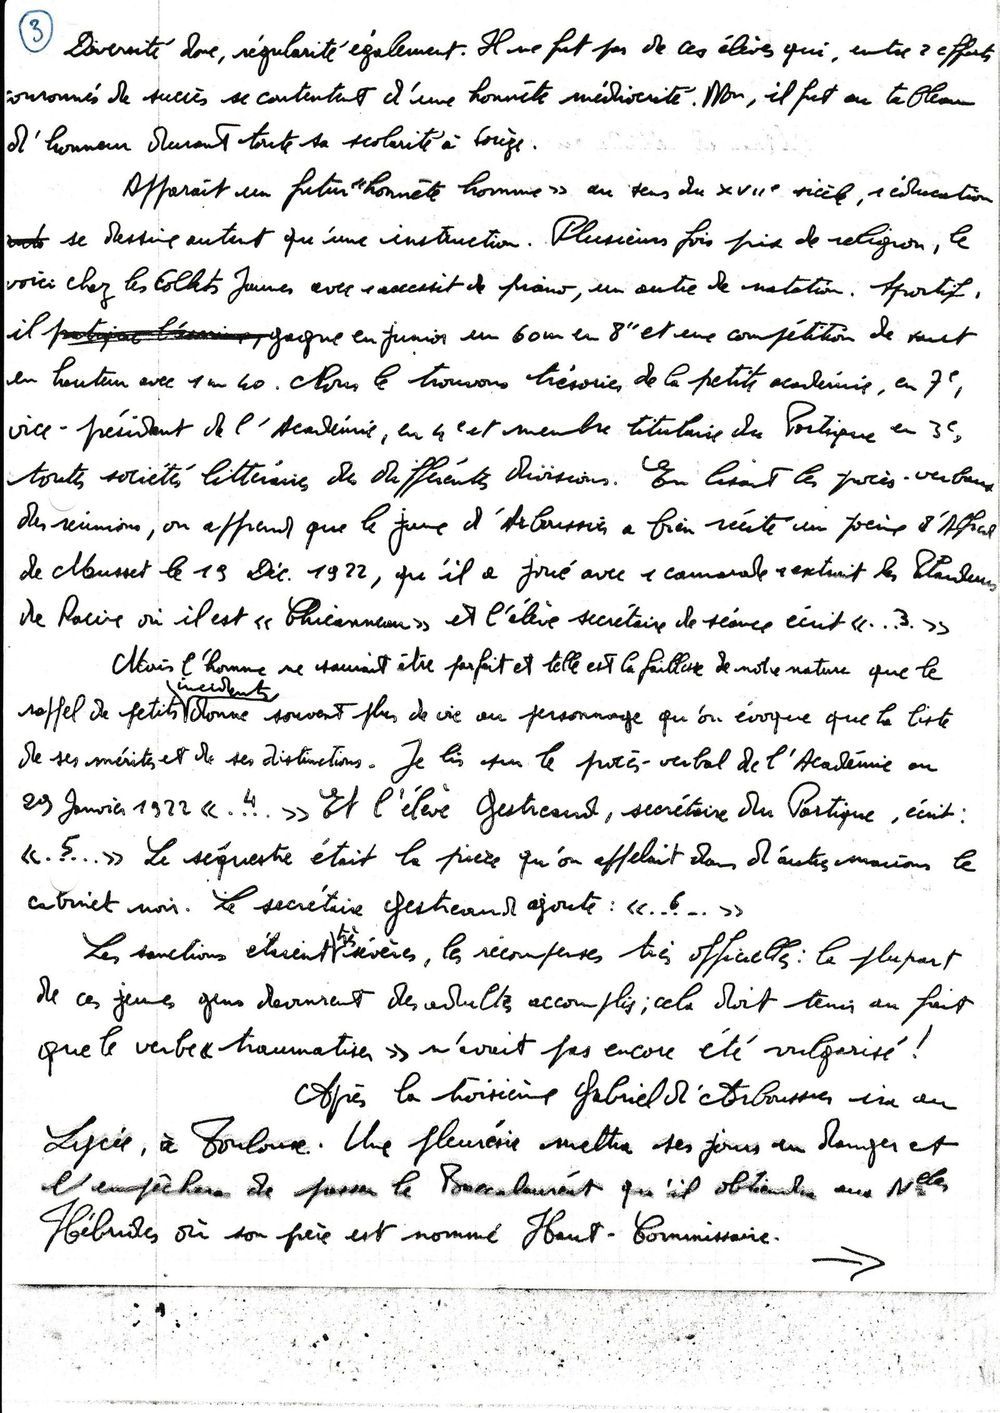 3
Diversité donc, régularité également. Il ne fut pas de ces élèves qui, entre 2 efforts
couronnés de succès se contentent d'une honnête médiocrité. Non, il fut au tableau
d'honneur durant toute sa scolarité à Sorèze.
Apparaît un futur "honnête homme» au sens du XVIIe siècle, 1 éducation
se dessine autant qu'une instruction. Plusieurs fois prix de religion, le
voici chez les Collets Jaunes avec 1 accessit de piano, un autre de natation. Sportif,
il gagne en junior un 60m en 8" et une compétition de saut
en hauteur avec 1m40. Nous le trouvons trésorier de la petite académie, en 7e,
vice-président de l'Académie, en 4e et membre titulaire du Portique en 3e,
toutes sociétés littéraires des différentes divisions. En lisant les procès-verbaux
des réunions, on apprend que le jeune d'Arboussier a bien récité un poème d'Alfred
de Musset le 19 Déc. 1922, qu'il a joué avec 1 camarade 1 extrait les Plaideurs
de Racine où il est «Chicanneau» et l'élève secrétaire de séance écrit «..3.»
Mais l'homme ne saurait être parfait et telle est la faiblesse de notre nature que le
rappel de petits incidents donne souvent plus de vie au personnage qu'on évoque que la liste
de ses mérites et de ses distinctions. Je lis sur le procès-verbal de l'Académie au
29 Janvier 1922 «.4.» Et l'élève Gestreaud, secrétaire du Portique, écrit:
«.5...» Le séquestre était la pièce qu'on appelait dans d'autres maisons le
cabinet noir. Le secrétaire Gestreaud ajoute: «..6..»
Les sanctions étaient très sévères, les récompenses très officielles: la plupart
de ces jeunes gens devinrent des adultes accomplis; cela doit tenir au fait
que le verbe «traumatiser» n'avait pas encore été vulgarisé!
Après la troisième Gabriel d'Arboussier ira au
Lycée, à Toulouse. Une pleurésie mettra ses jours en danger et
l'empêchera de passer le Baccalauréat qu'il obtiendra aux Nelles
Hébrides où son père est nommé Haut-Commissaire.
→